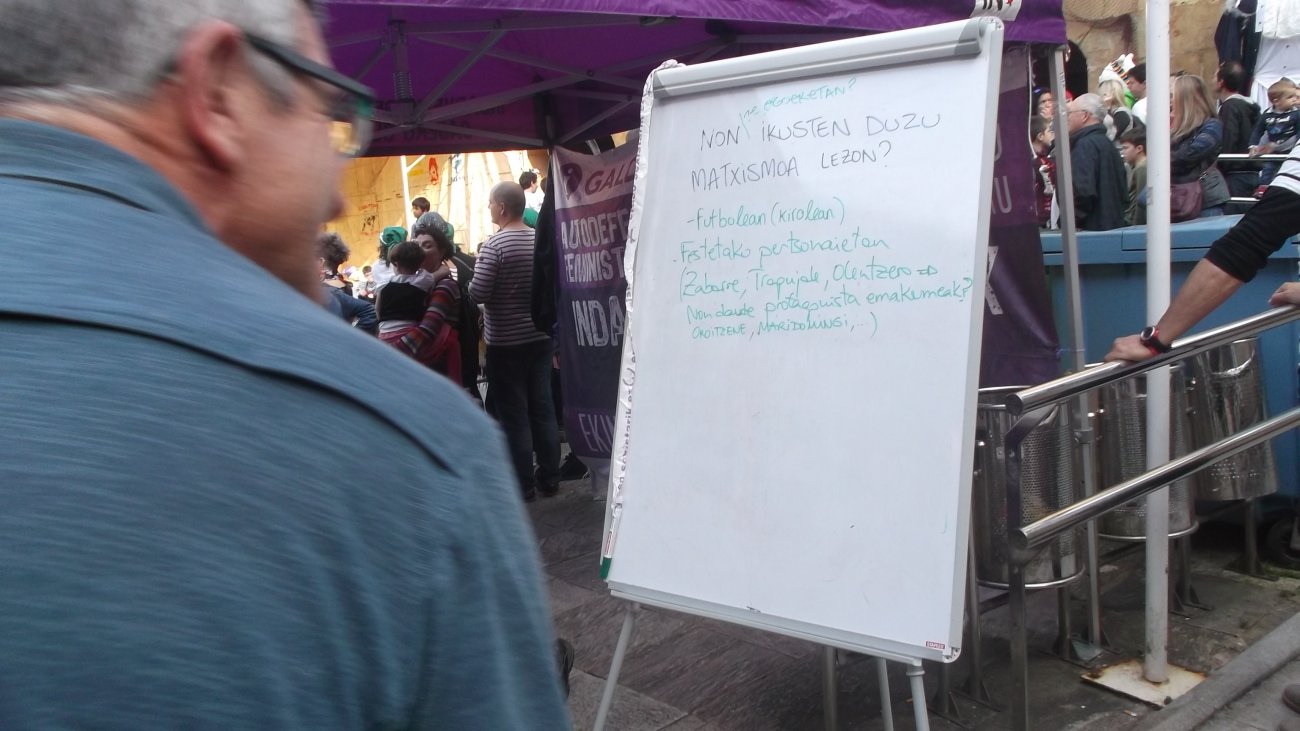 NON IKUSTEN DUZU
MATXISMOA LEZON?
-futbolean (kirolean)
- Festetako pertsonaietan
(Zabarre, Trapujale, Olentzero ⇒
Non daude protagonista emakumeak?
OROITZENE, MARIDOMINGI, ...)
GALL
AUTODEFE
FEMINIST
INDA
EKIN